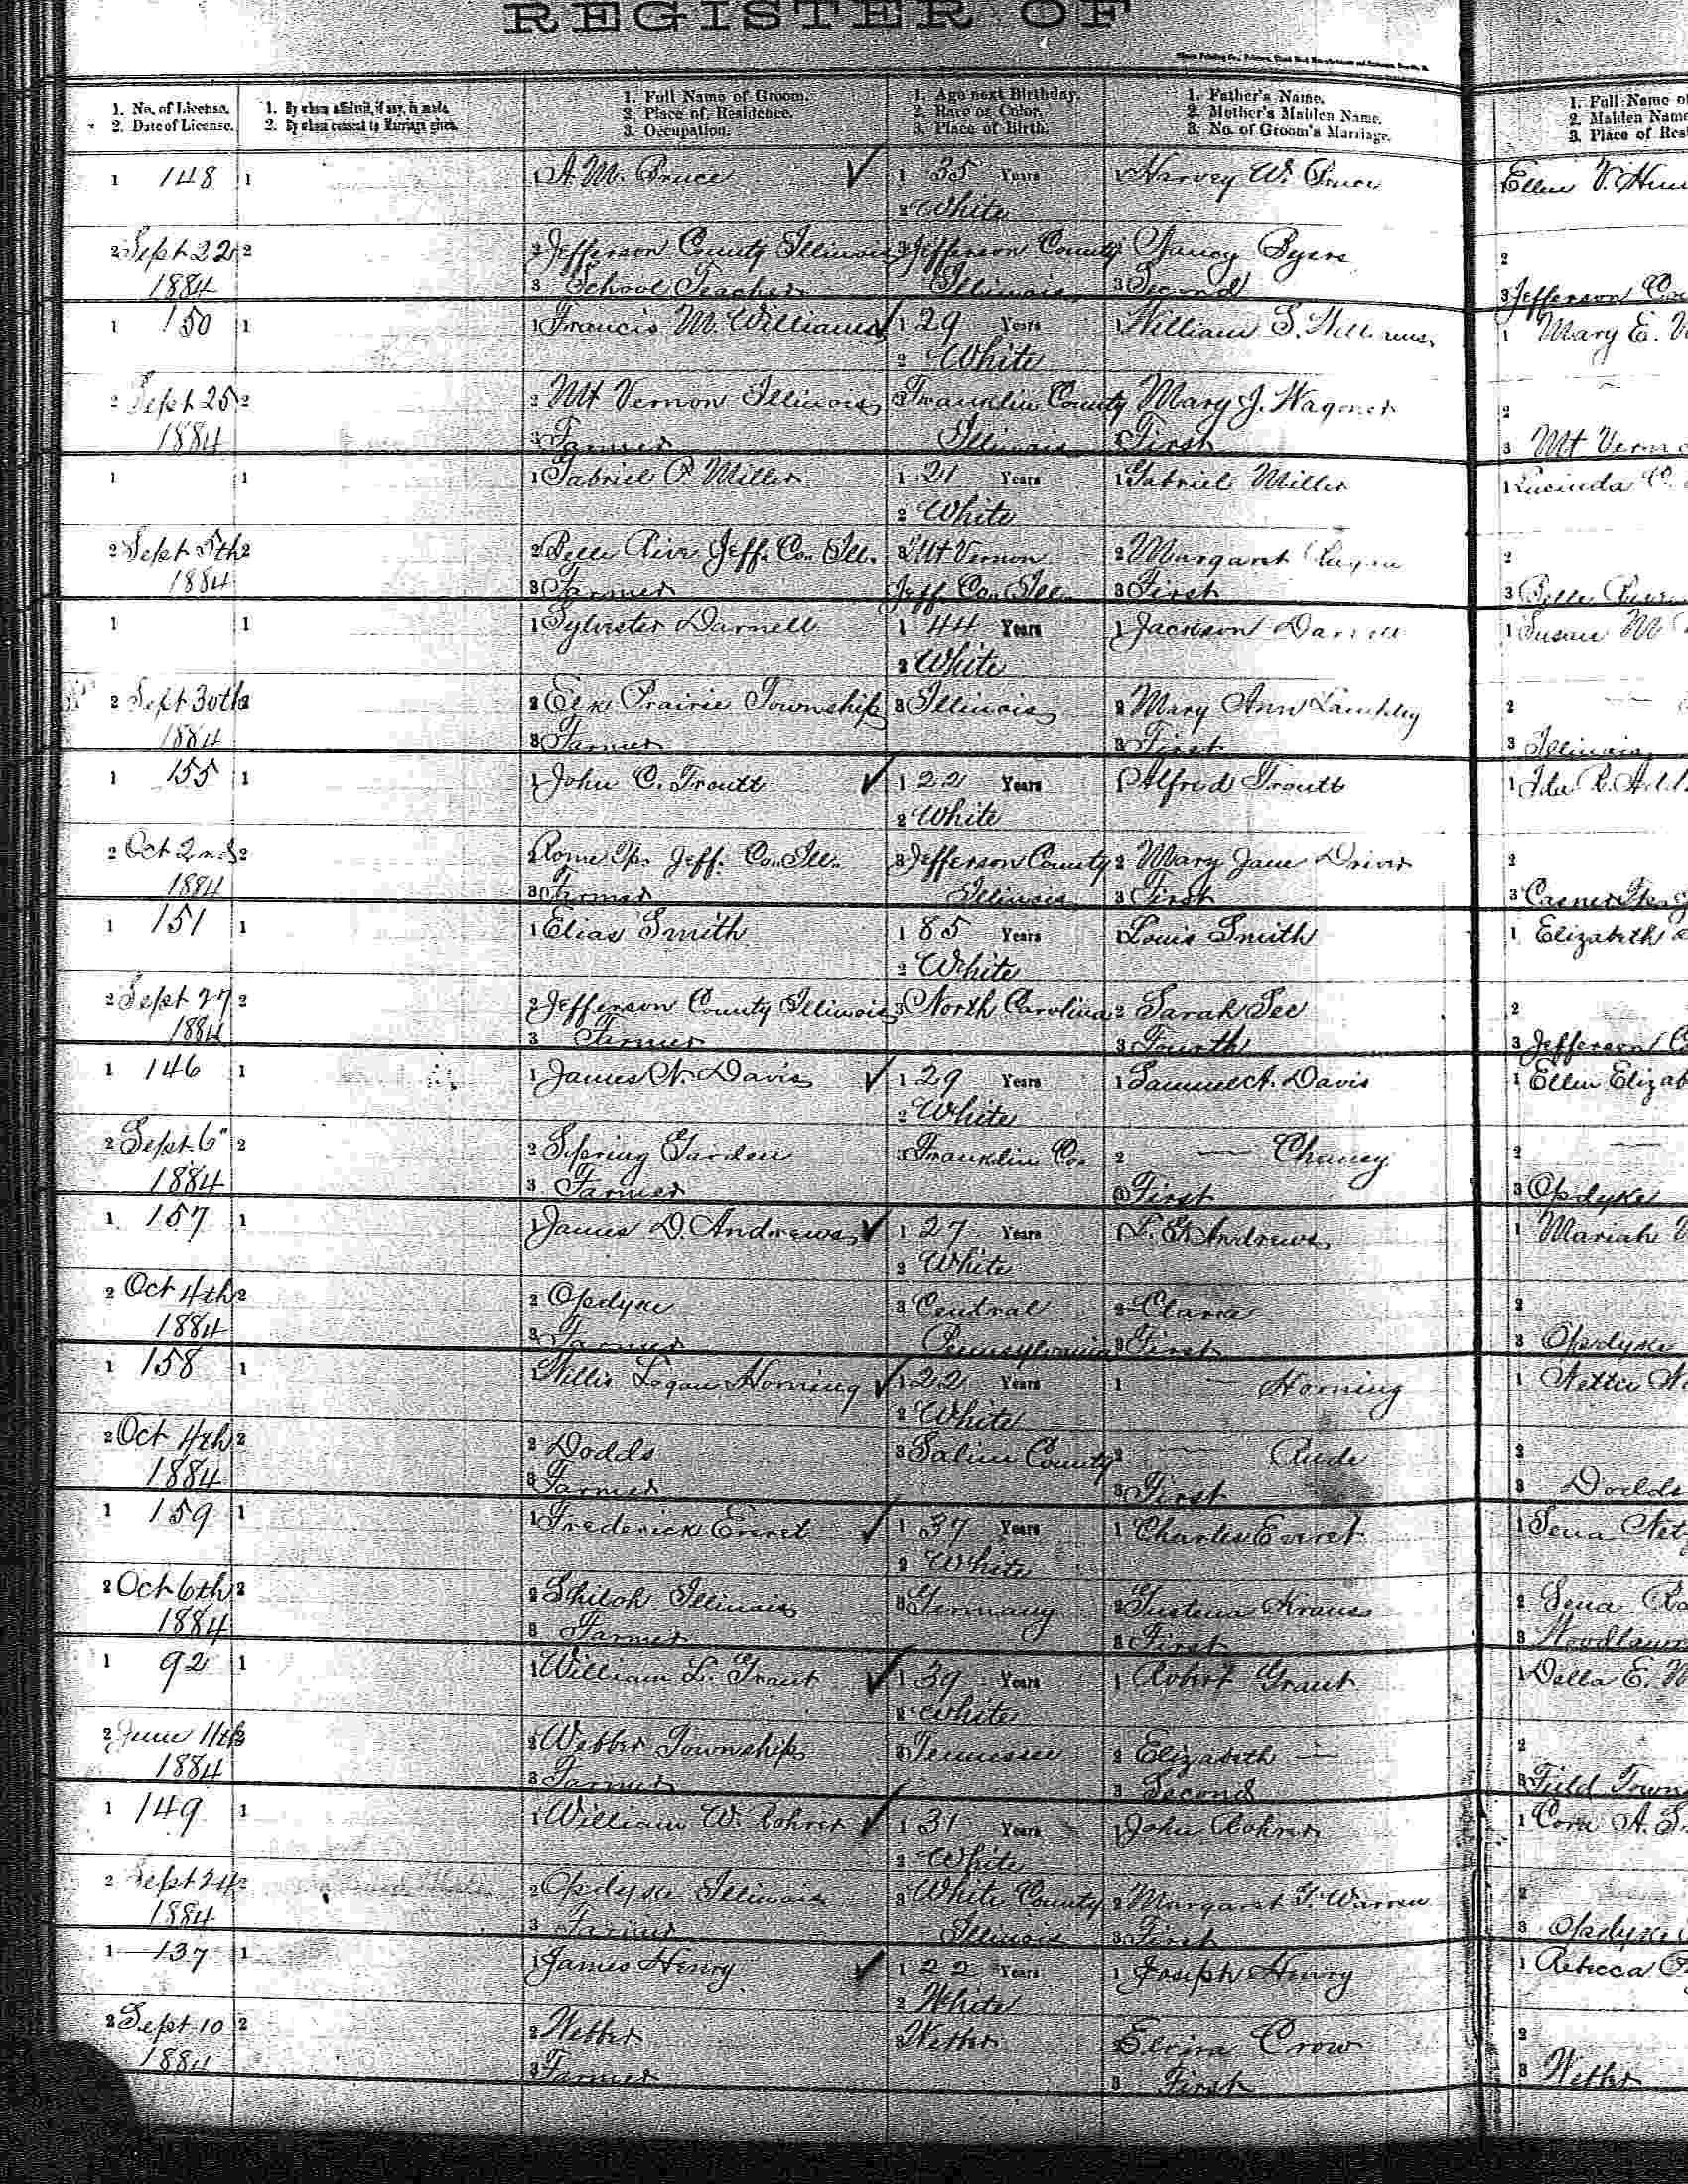 REGISTER OF
1. No. of License.
2. Date of License.
1. By whom affidavit, if any, is made.
2. By whom consent to Marriage given.
1. Full Name of Groom.
2. Place of Residence.
3. Occupation.
1. Age next Birthday.
2. Race or Color.
3. Place of Birth.
1. Father's Name.
2. Mother's Maiden Name.
3. No. of Groom's Marriage.
1. Full Name of
2. Maiden Name
3. Place of Res
1 148 1 1 A. M. Bruce ✓ 1 35 Years 1 Harvey W. Bruce Ellen V.
2 White
2 Sept 22 2 2 Jefferson County Illinois 3 Jefferson County Nancy Byers 2
1884 3 School Teacher Illinois 3 Second 3 Jefferson Co
1 150 1 1 Francis M. Williams ✓ 1 29 Years 1 William S. Williams 1 Mary E.
2 White
2 Sept 25 2 2 Mt Vernon Illinois 3 Franklin County Mary J. Wagoner 2
1884 3 Farmer Illinois 3 First 3 Mt Vern
1 1 1 Gabriel P. Miller 1 21 Years 1 Gabriel Miller 1 Lucinda C.
2 White
2 Sept 5th 2 2 Belle Rive Jeff. Co. Ill. 3 Mt Vernon 2 Margaret 2
1884 3 Farmer Jeff. Co. Ill. 3 First 3 Belle
1 1 1 Sylvester Darnell 1 44 Years 1 Jackson Darnell 1 Susan M
2 White
2 Sept 30th 2 2 Elk Prairie Township 3 Illinois 2 Mary Ann 2
1884 3 Farmer 3 First 3 Illinois
1 155 1 1 John C. Troutt ✓ 1 22 Years 1 Alfred Troutt 1 Ida
2 White
2 Oct 2nd 2 2 Rome Tp. Jeff. Co. Ill. 3 Jefferson County 2 Mary Jane Driver 2
1884 3 Farmer Illinois 3 First 3 Casner
1 151 1 1 Elias Smith 1 85 Years 1 Louis Smith 1 Elizabeth
2 White
2 Sept 27 2 2 Jefferson County Illinois 3 North Carolina 2 Sarah Lee 2
1884 3 Farmer 3 Fourth 3 Jefferson C
1 146 1 1 James N. Davis ✓ 1 29 Years 1 Samuel A. Davis 1 Ellen Elizab
2 White
2 Sept 6" 2 2 Spring Garden 3 Franklin Co. 2 — Chaney 2 —
1884 3 Farmer 3 First 3 Opdyke
1 157 1 1 James D. Andrews ✓ 1 27 Years 1 Andrews 1 Mariah
2 White
2 Oct 4th 2 2 Opdyke 3 Central 2 Clara 2
1884 3 Farmer Pennsylvania 3 First 3 Opdyke
1 158 1 Willis Logan Horning ✓ 1 22 Years 1 — Horning 1 Nettie
2 White
2 Oct 4th 2 2 Dodds 3 Saline County 2 — Rude 2
1884 3 Farmer 3 First 3 Dodds
1 159 1 1 Frederick Everet ✓ 1 37 Years 1 Charles Everet 1 Sena
2 White
2 Oct 6th 2 2 Shiloh Illinois 3 Germany 2 Kraus 2 Sena
1884 3 Farmer 3 First 3 Woodlawn
1 92 1 1 William L. Grant ✓ 1 39 Years 1 Robert Grant 1 Della E.
2 White
2 June 11th 2 2 Webber Township 3 Tennessee 2 Elizabeth — 2
1884 3 Farmer 3 Second 3 Field Town
1 149 1 1 William W. Rohrer ✓ 1 31 Years 1 John Rohrer 1 Cora A.
2 White
2 Sept 24 2 2 Opdyke Illinois 3 White County 2 Margaret Warren 2
1884 3 Farmer Illinois 3 First 3 Opdyke
1 137 1 1 James Henry ✓ 1 22 Years 1 Joseph Henry 1 Rebecca
2 White
2 Sept 10 2 2 Webber Webber Elvira Crow 2
1884 3 Farmer 3 First 3 Webber